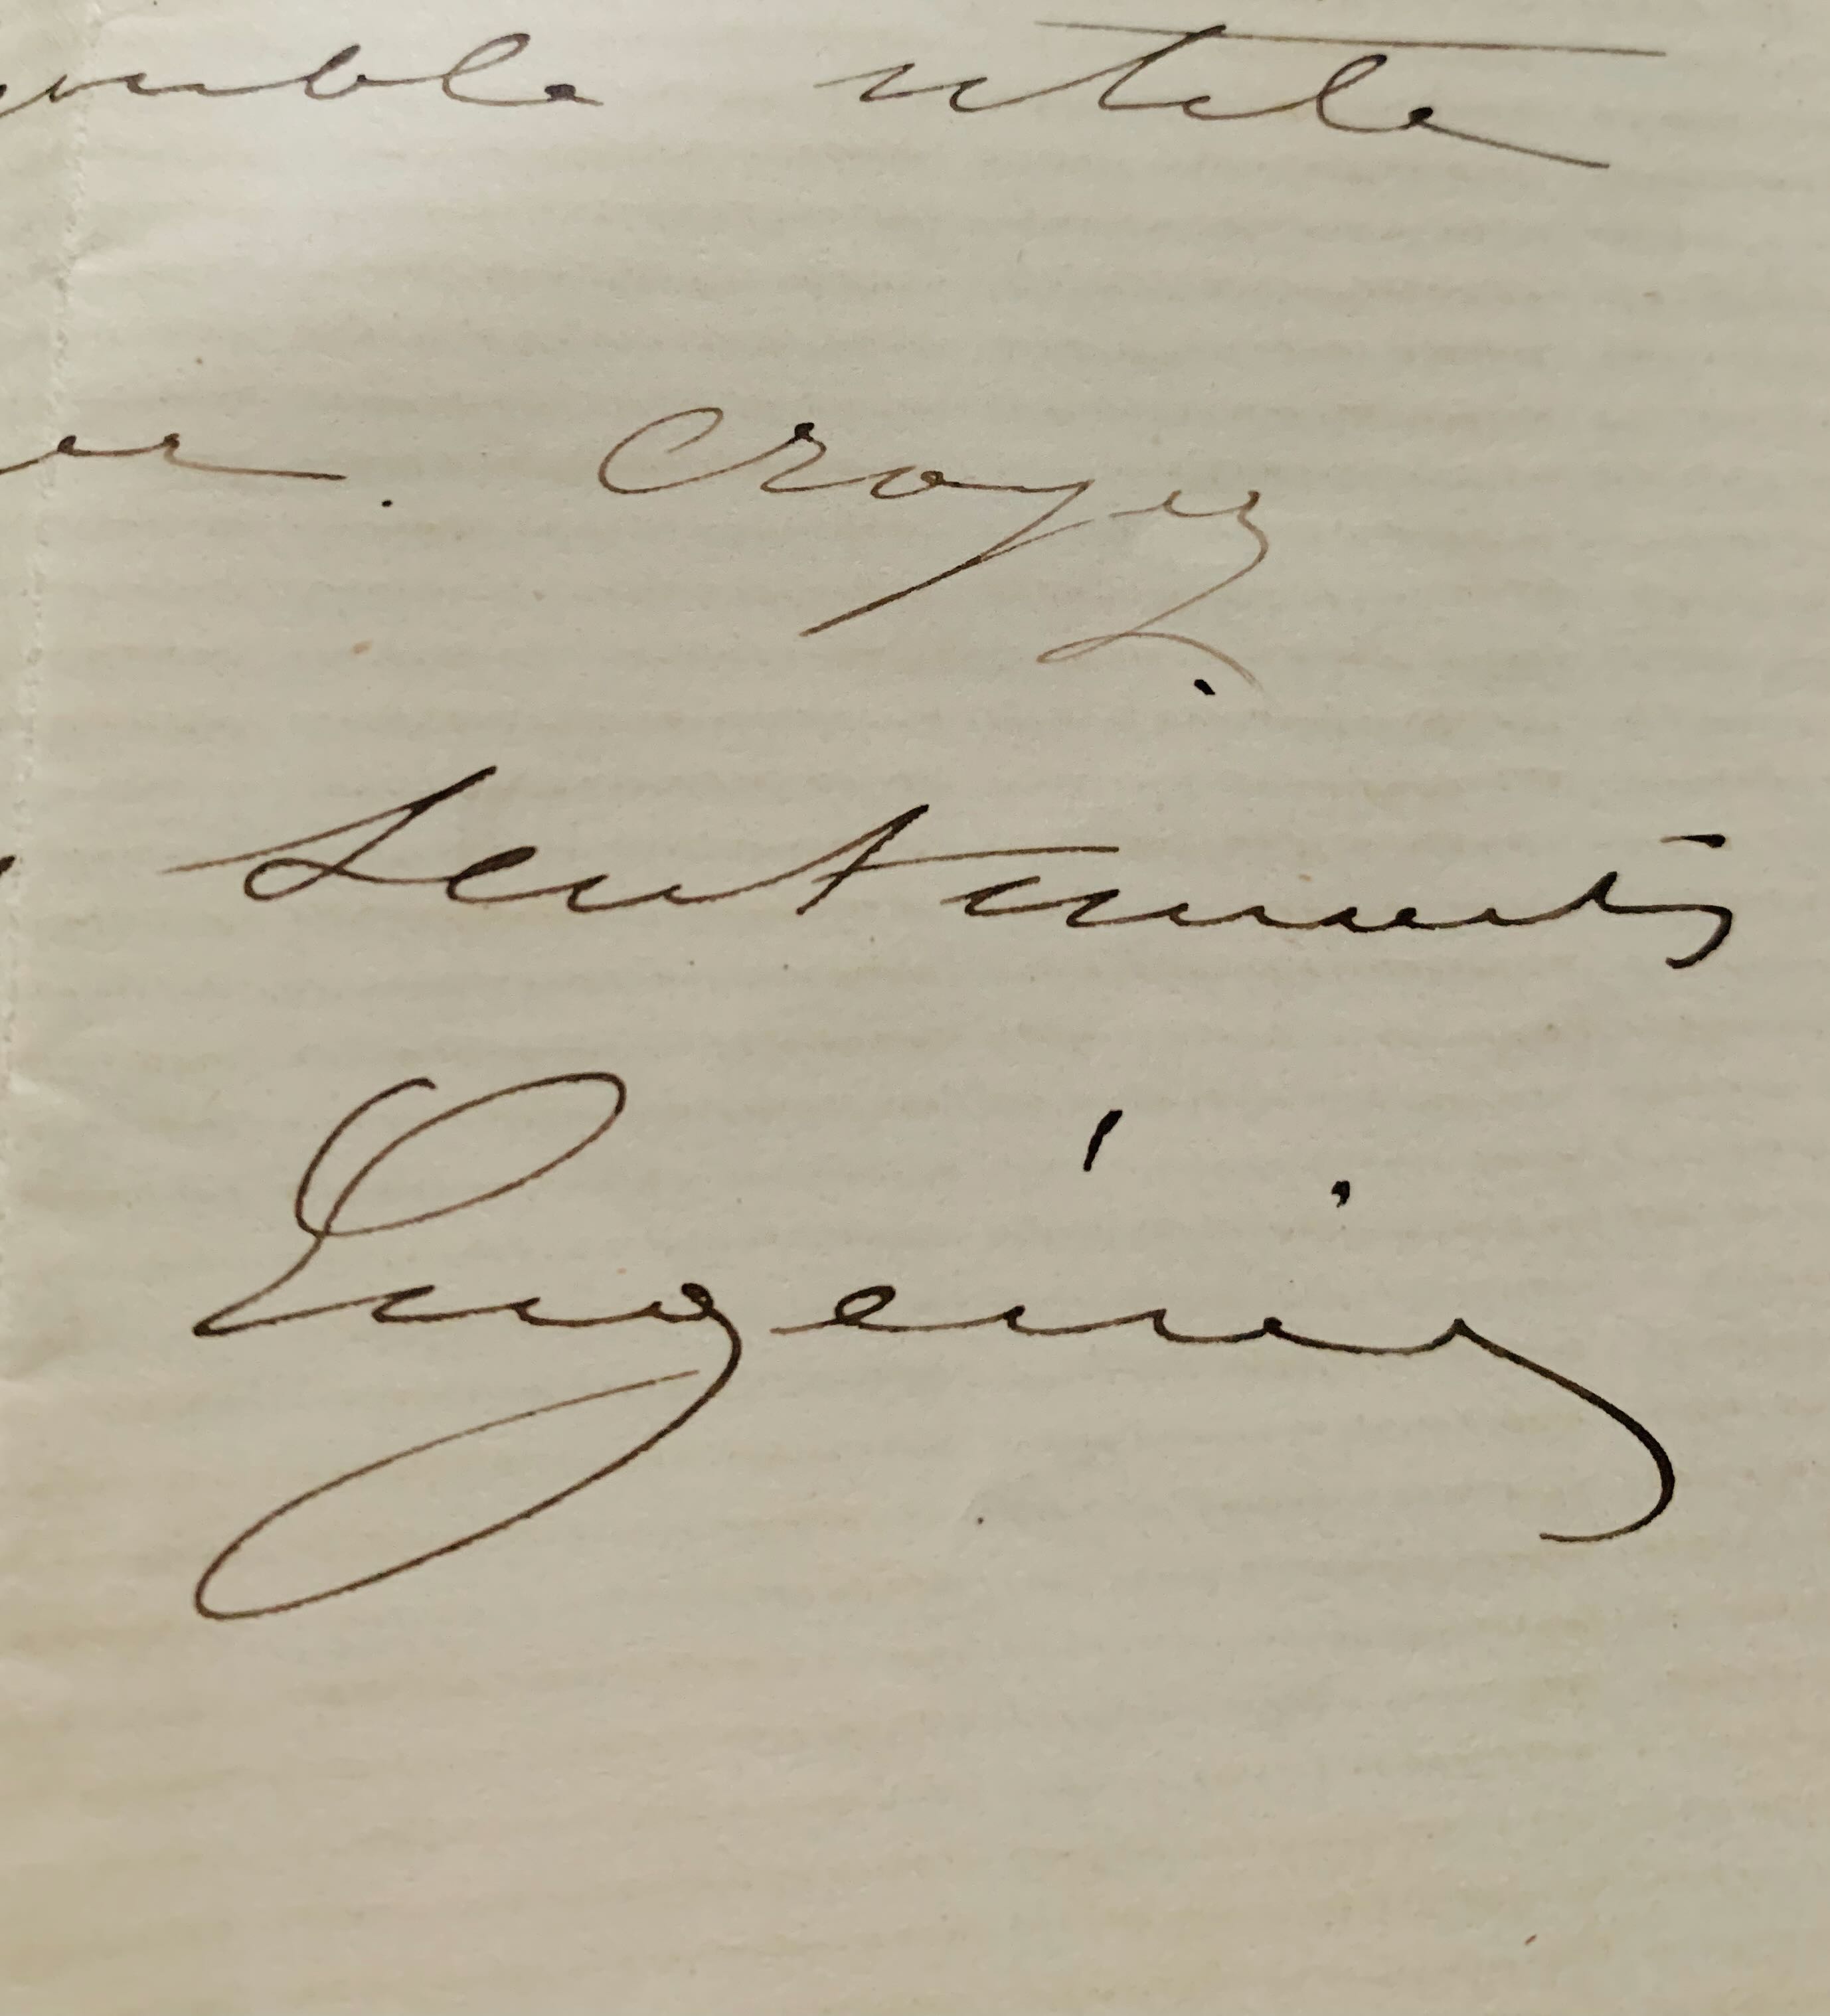 semble utile
croyez
sentiments
Eugénie